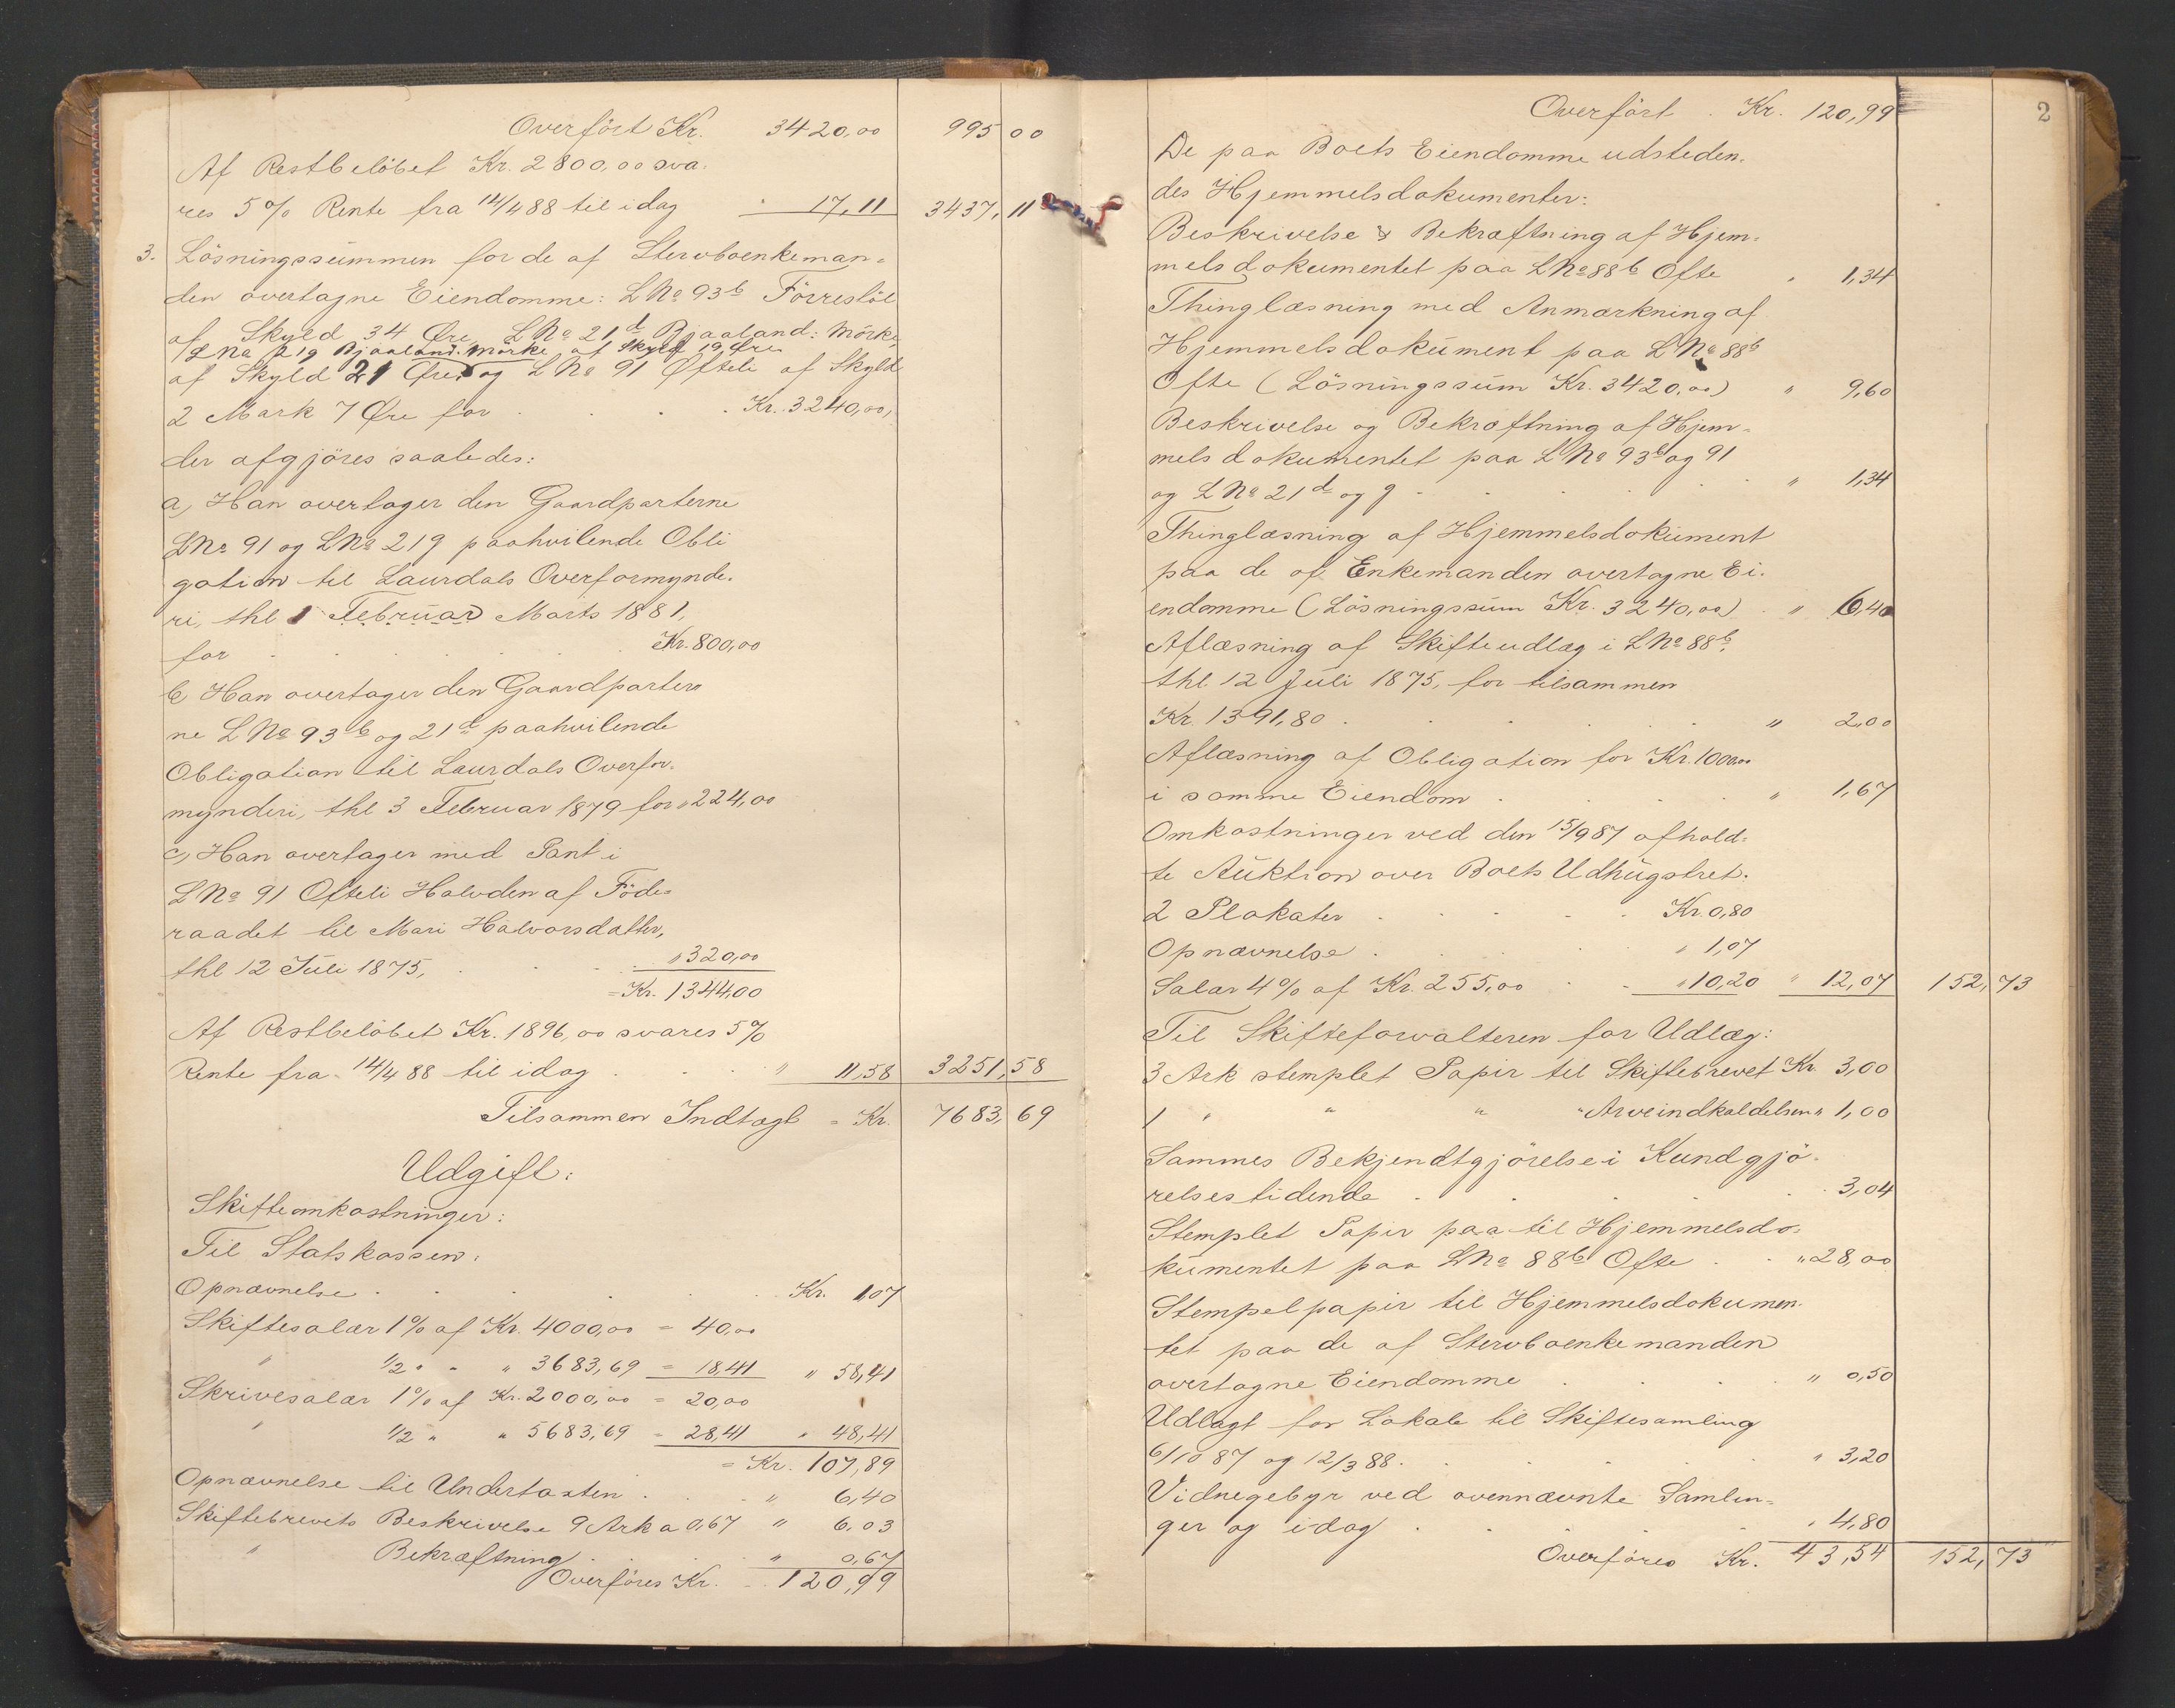 Overført Kr. 3420,00 995 00
Af Restbeløbet Kr. 2800,00 sva-
res 5 % Rente fra 14/4 88 til idag " 17,11 3437, 11
3. Løsningssummen for de af Stervboenkeman-
den overtagne Eiendomme: L No 93b Førresløl
af Skyld 34 Øre, L No 21d Bjaaland: Mørke,
L No 21g Bjaaland. Mørke af Skyld 19 Øre
af Skyld 21 Øre, og L No 91 Ofteli af Skyld
2 Mark 7 Øre for . . . . Kr. 3240,00,
der afgjøres saaledes:
a, Han overtager den Gaardparterne
LNo 91 og LNo 21g paahvilende Obli
gation til Laurdals Overformynde-
ri, thl 1 Februar Marts 1881,
for . . . . . . Kr. 800,00
b, Han overtager den Gaardparter
ne L No 93b og 21d paahvilende
Obligation til Laurdals Overfor-
mynderi, thl 3 Februar 1879 for " 224,00
c, Han overtager med Pant i
LNo 91 Ofteli Halvden af Føde-
raadet til Mari Halvorsdatter,
thl 12 Juli 1875, . . . " 320,00
= Kr. 1344,00
Af Restbeløbet Kr. 1896,00 svares 5 %
Rente fra 14/4 88 til idag . . . " 11,58 3251, 58
Tilsammen Indtægt = Kr. 7683, 69
Udgift:
Skifteomkostninger:
Til Statskassen:
Opnævnelse . . . . . . Kr. 1,07
Skiftesalær 1 % af Kr. 4000,00 = 40,00
" 1/2 " " " 3683,69 = 18,41 " 58,41
Skrivesalær 1 % af Kr. 2000,00 = 20,00
" 1/2 " " 5683,69 = 28,41 " 48,41
= Kr. 107,89
Opnævnelse til Undertaxten . . . " 6,40
Skiftebrevets Beskrivelse 9 Ark a 0,67 " 6,03
" Bekræftning . . . . " 0,67
Overføres Kr. . . 120,99
2
Overført . Kr. 120,99
De paa Boets Eiendomme udsteden-
des Hjemmelsdokumenter:
Beskrivelse & Bekræftning af Hjem-
melsdokumentet paa L No 88b Ofte " 1,34
Thinglæsning med Anmærkning af
Hjemmelsdokument paa L No 88b
Ofte (Løsningssum Kr. 3420,00) " 9,60
Beskrivelse og Bekræftning af Hjem-
melsdokumentet paa L No 93b og 91
og L No 21d og g . . . . . " 1,34
Thinglæsning af Hjemmelsdokument
paa de af Enkemanden overtagne Ei-
endomme (Løsningssum Kr. 3240,00) . " 6,40
Aflæsning af Skifteudlæg i L No 88b,
thl 12 Juli 1875, for tilsammen
Kr. 1391,80 . . . . . . " 2,00
Aflæsning af Obligation for Kr. 1000,00
i samme Eiendom . . . . " 1,67
Omkostninger ved den 15/9 87 afhold-
te Auktion over Boets Udhugstret.
2 Plakater . . . . . Kr. 0,80
Opnævnelse . . . . " 1,07
Salær 4 % af Kr. 255,00 . . " 10,20 " 12,07 152, 73
Til Skifteforvalteren for Udlæg:
3 Ark stemplet Papir til Skiftebrevet Kr. 3,00
1 " " " " Arveindkaldelsen " 1,00
Sammes Bekjendtgjørelse i Kundgjø-
relsestidende . . . . . 3,04
Stemplet Papir paa til Hjemmelsdo-
kumentet paa LNo 88b Ofte . . " 28,00
Stempelpapir til Hjemmelsdokumen-
tet paa de af Stervboenkemanden
overtagne Eiendomme . . . . " 0,50
Udlagt for Lokale til Skiftesamling
6/10 87 og 12/3 88. . . . . " 3,20
Vidnegebyr ved ovennævnte Samlin-
ger og idag . . . . . " 4,80
Overføres Kr. 43,54 152, 73